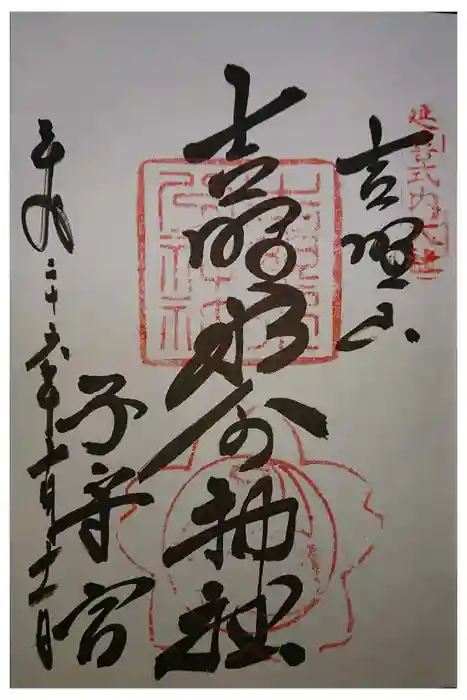 延喜式内大社
吉野山
吉野水分神社
子守宮
平成二十六年十一月十一日